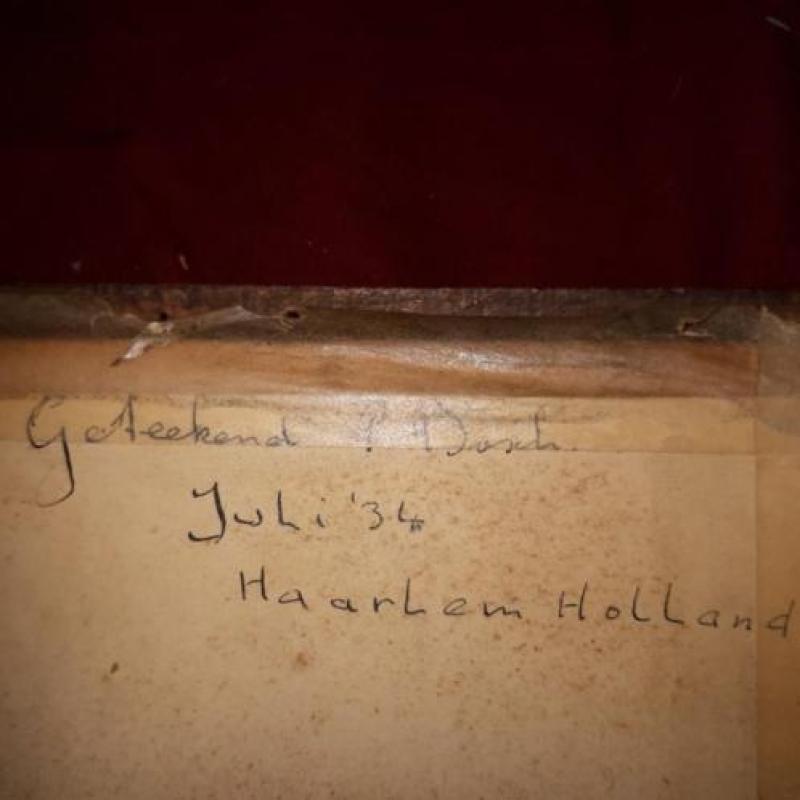 Geteekend
Juli '34
Haarlem Holland